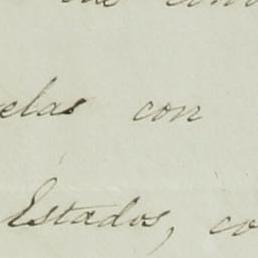 elas con
Estados, co